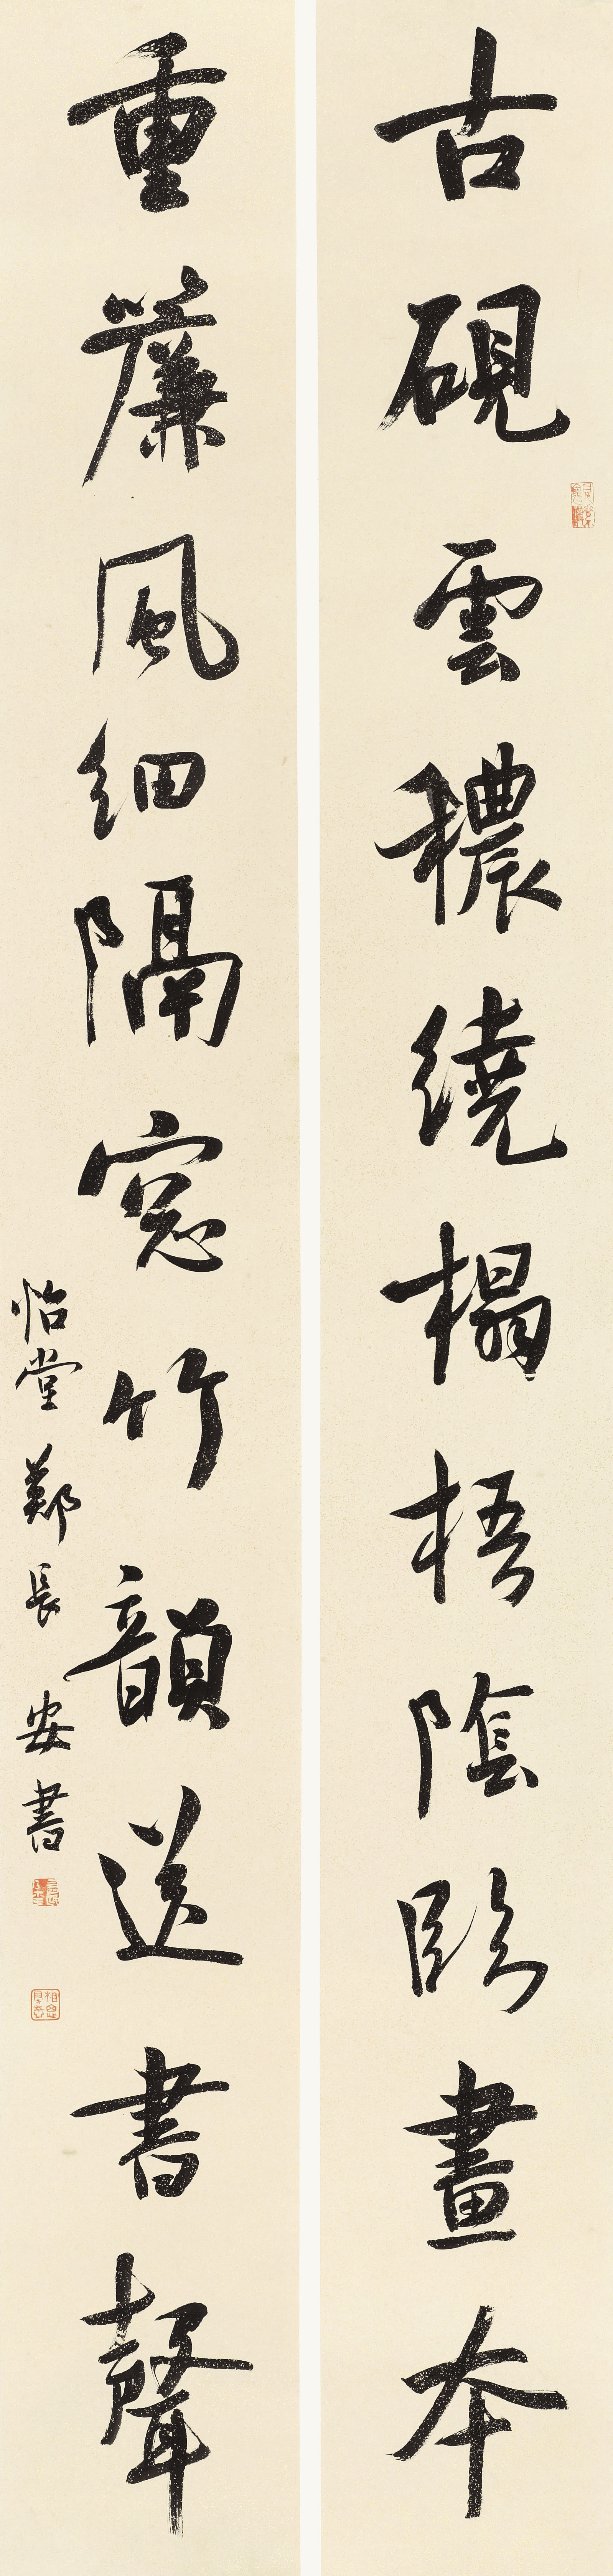 古硯雲穠繞榻梧陰臨畫本
重簾風細隔窓竹韻送書聲
怡堂鄭長安書